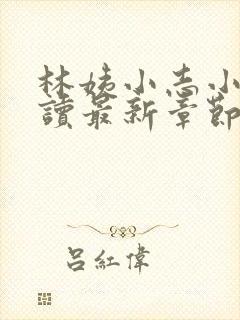 林姨小志小
讀最新章節
呂紅偉